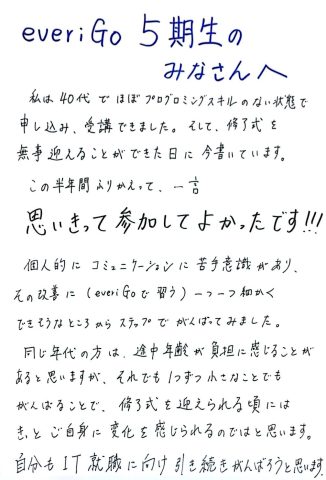 everiGo 5期生の
みなさんへ
私は40代でほぼプログロミングスキルのない状態で
申し込み、受講できました。そして、修了式を
無事迎えることができた日に今書いています。
この半年間ふりかえって、一言
思いきって参加してよかったです!!!
個人的にコミュニケーションに苦手意識があり、
その改善に(everiGoで習う)一つ一つ細かく
できそうなところからステップでがんばってみました。
同じ年代の方は、途中年齢が負担に感じることが
あると思いますが、それでも1つずつ小さなことでも
がんばることで、修了式を迎えられる頃には
きっとご自身に変化を感じられるのではと思います。
自分もIT就職に向け引き続きがんばろうと思います。